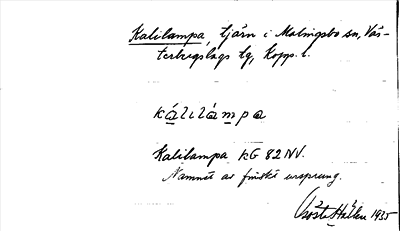 Kalilampa, tjärn i Malingsbo sn, Väs-
terbergslags tg, Kopp. l.
kálilámpa
Kalilampa KG 82 NV.
Namnet av finskt ursprung.
Gösta Hallén 1935